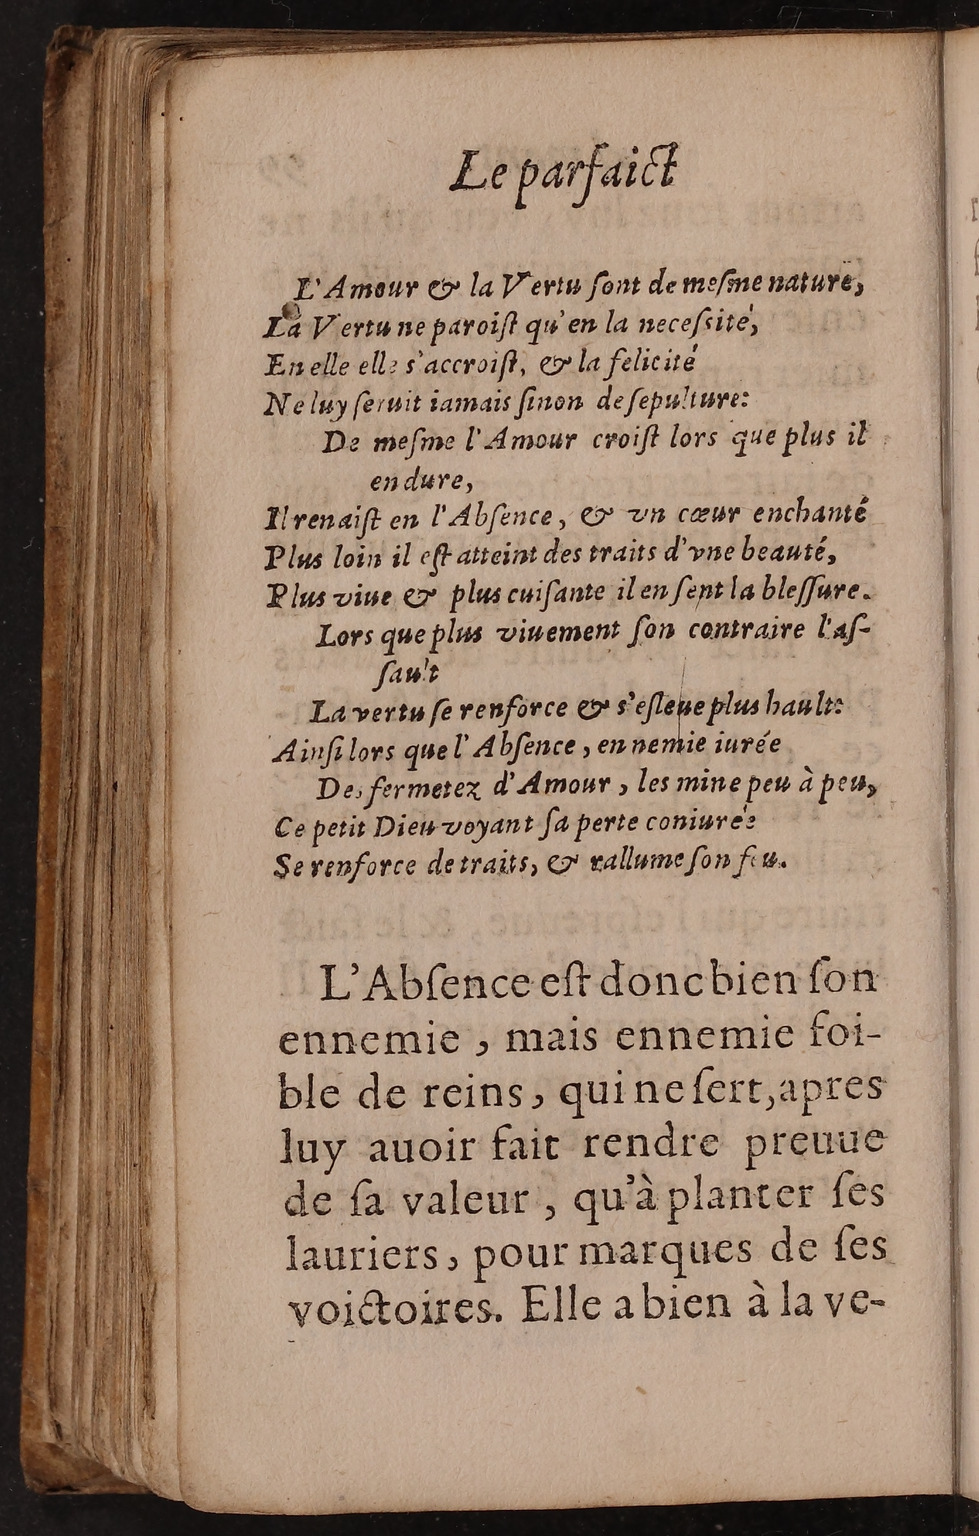 Le parfaict
L'Amour & la Vertu ſont de meſme nature,
La Vertu ne paroiſt qu'en la neceſsité,
En elle elle s'accroiſt, & la felicité
Ne luy ſeruit iamais ſinon de ſepulture:
De meſme l'Amour croiſt lors que plus il
endure,
Il renaiſt en l'Abſence, & vn cœur enchanté
Plus loin il eſt atteint des traits d'vne beauté,
Plus viue & plus cuiſante il en ſent la bleſſure.
Lors que plus viuement ſon contraire l'aſ-
ſault
La vertu ſe renforce & s'eſleue plus hault:
Ainſi lors que l'Abſence, ennemie iurée
Des fermetez d'Amour, les mine peu à peu,
Ce petit Dieu voyant ſa perte coniurée
Se renforce de traits, & rallume ſon feu.
L'Abſence eſt donc bien ſon
ennemie, mais ennemie foi-
ble de reins, qui ne ſert, apres
luy auoir fait rendre preuue
de ſa valeur, qu'à planter ſes
lauriers, pour marques de ſes
voictoires. Elle a bien à la ve-